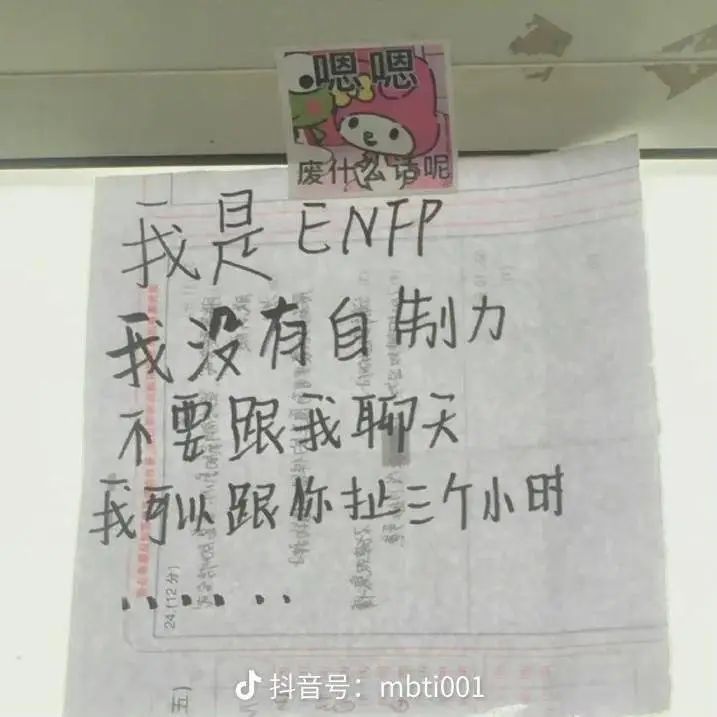 嗯嗯
废什么话呢
我是ENFP
我没有自制力
不要跟我聊天
我可以跟你扯三个小时
......
24.(12分)
五)
抖音号：mbti001